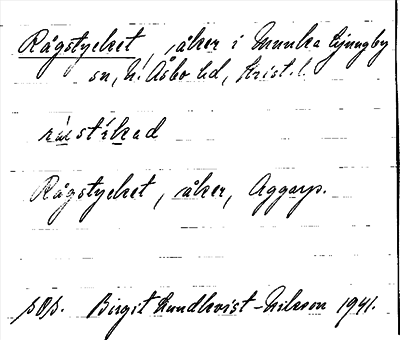 Rågstycket, åker i Munka Ljungby
sn, N. Åsbo hd, Krist. l.
Rågstycket, åker, Aggarp.
sOs. Birgit Lundkvist-Nilsson 1941.